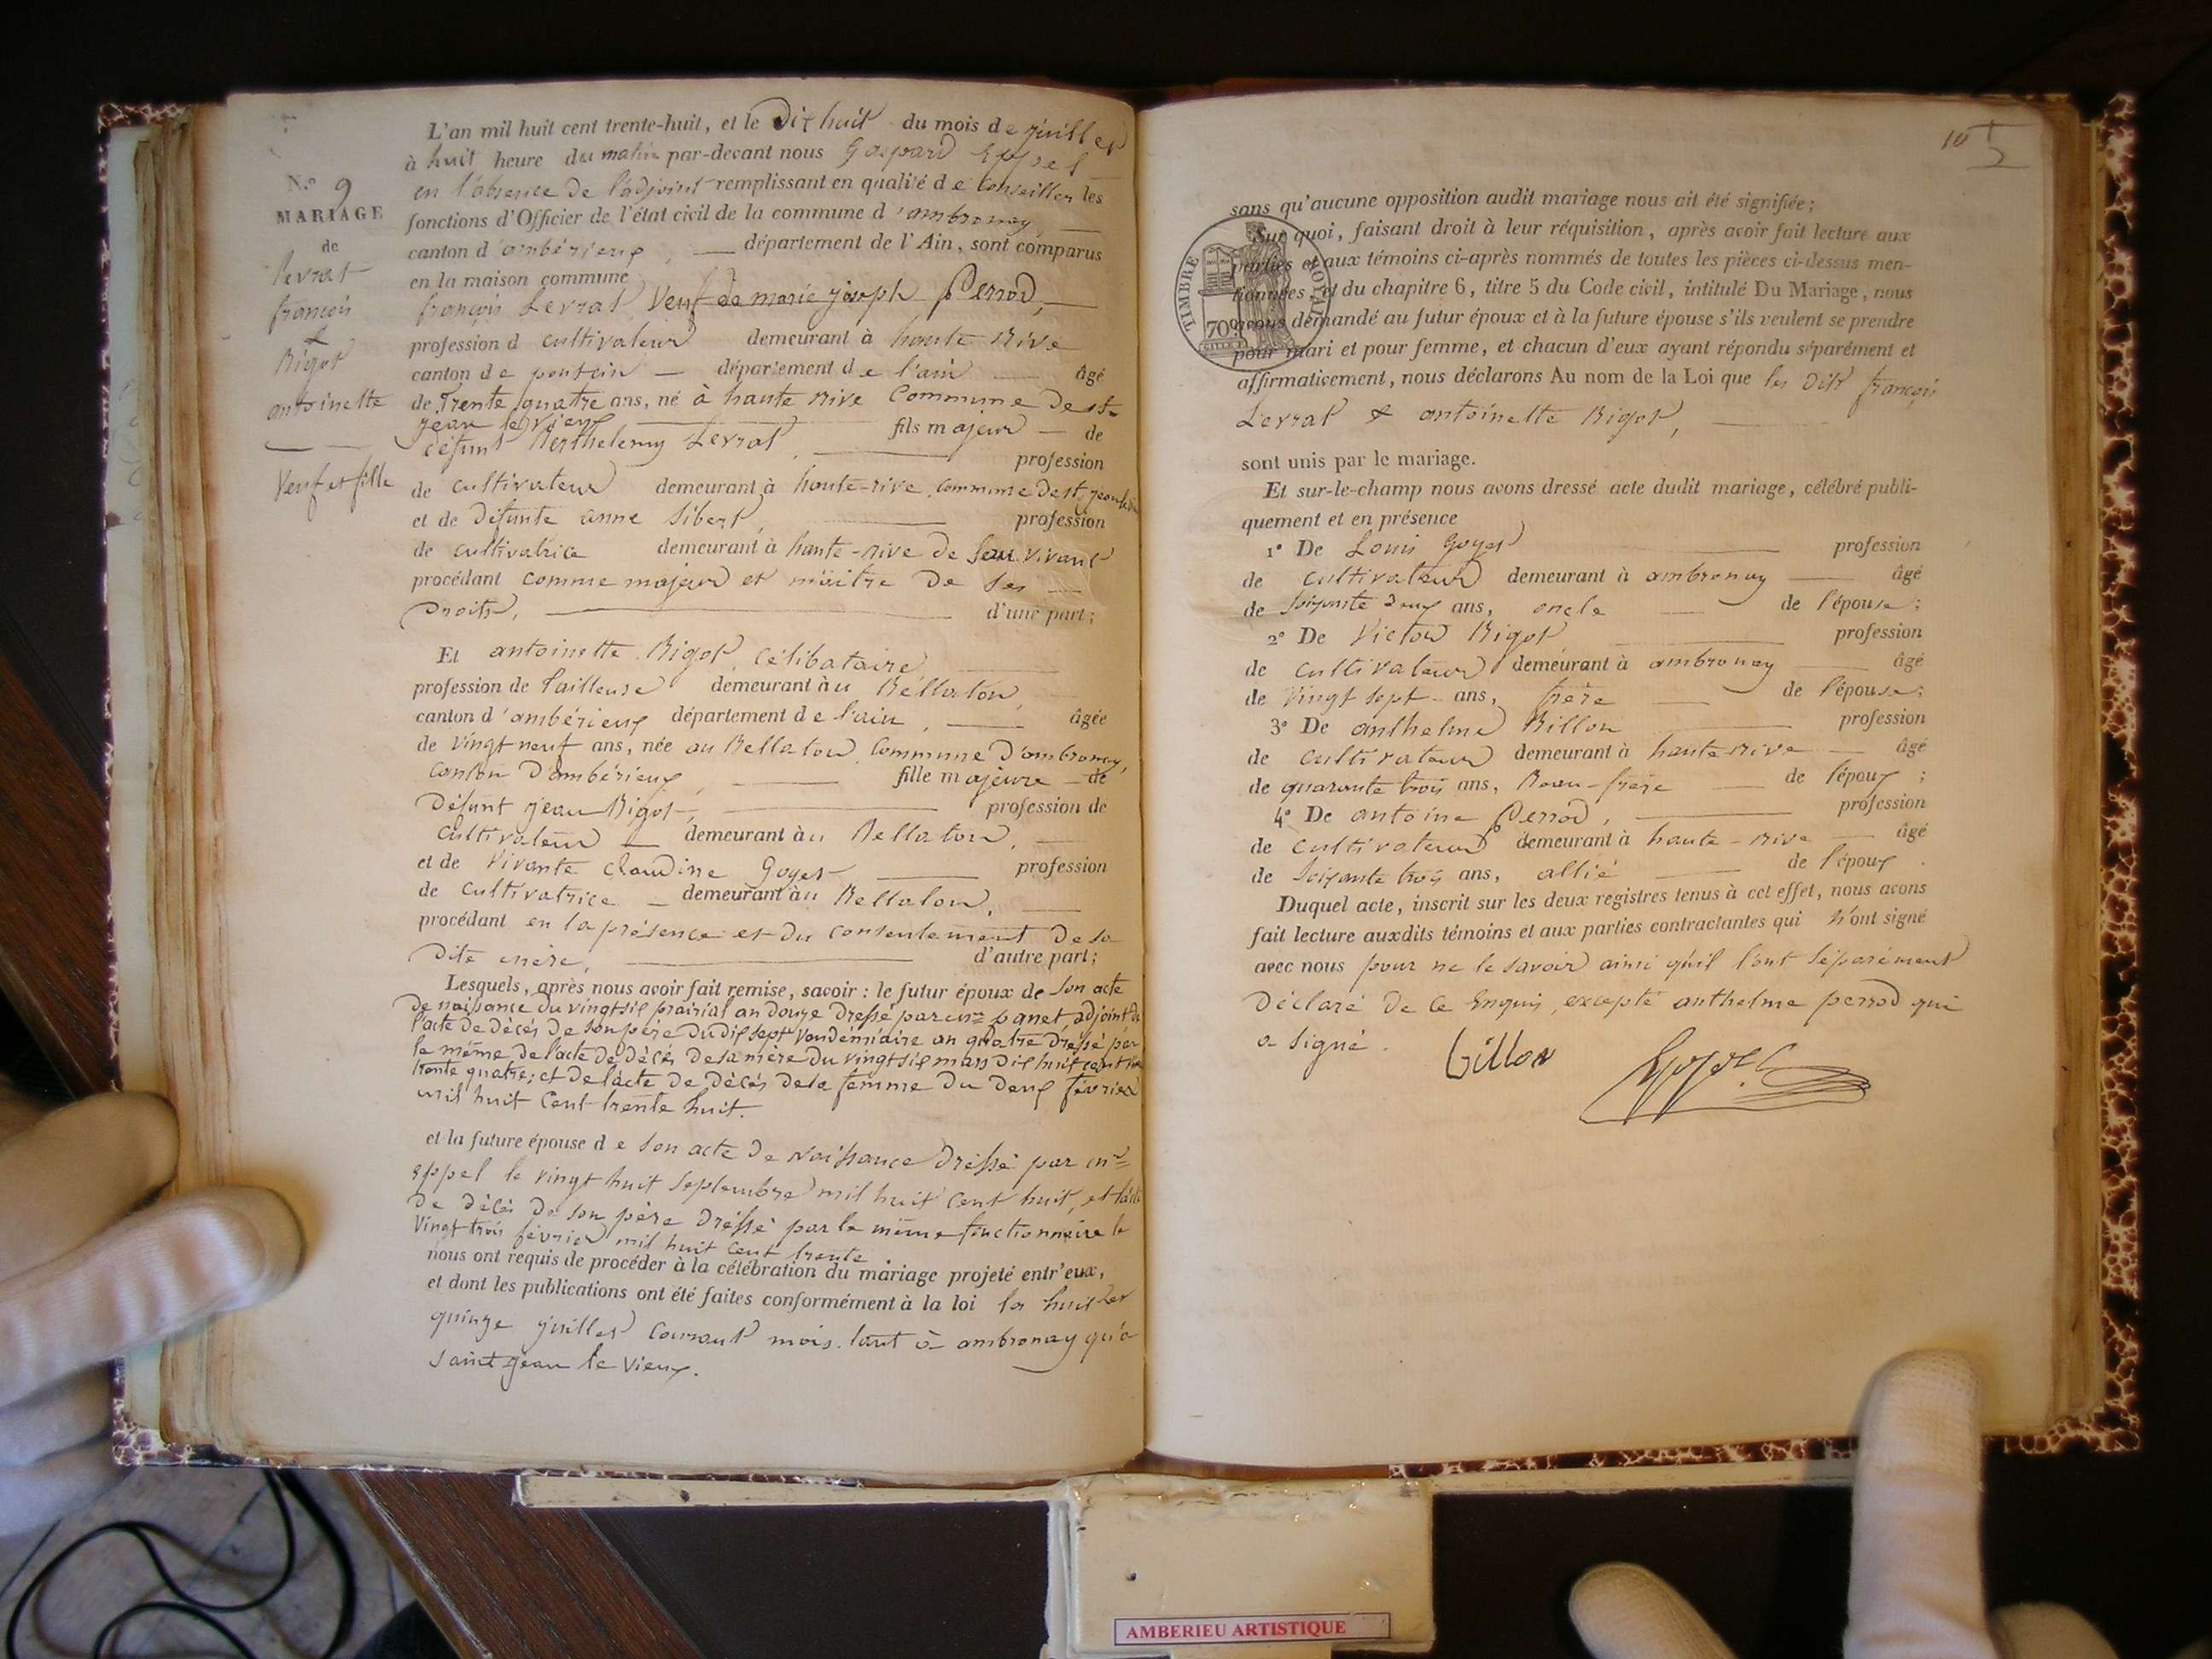 N.° 9
MARIAGE
de
Levrat
françois
&
Rigot
antoinette
Veuf et fille
L'an mil huit cent trente-huit, et le Dix huit du mois de juillet
à huit heure du matin par-devant nous Gaspard Eppel
en l'absence de l'adjoint remplissant en qualité de Conseiller les
fonctions d'Officier de l'état civil de la commune d'ambronay
canton d'ambérieux, département de l'Ain, sont comparus
en la maison commune
françois Levrat Veuf de marie joseph Perrod,
profession d cultivateur demeurant à haute Rive
canton de pontcin département de l'ain âgé
de Trente quatre ans, né à haute rive Commune de st
jean le vieux fils majeur de
défunt Berthelemy Levrat, profession
de cultivateur demeurant à haute-rive, commune de st jean le
et de défunte anne Sibert, profession
de cultivatrice demeurant à haute-rive de Leur vivant
procédant comme majeur et maitre De Ses
Droits, d'une part;
Et antoinette Rigot, célibataire
profession de Tailleuse demeurant àu Bellaton,
canton d'ambérieux département de l'ain, âgée
de Vingt neuf ans, née au Bellaton, Commune D'ambronay,
canton D'ambérieux, fille majeure de
Défunt jean Rigot, profession de
cultivateur demeurant àu Bellaton,
et de Vivante Claudine Goyet profession
de cultivatrice demeurant àu Bellaton,
procédant en la présence et du consentement De sa
Dite mère, d'autre part;
Lesquels, après nous avoir fait remise, savoir : le futur époux de Son acte
De naissance du vingt six prairial an douze Dressé par mr panet, adjoint
l'acte de Décès De son père Du dix sept Vendémiaire an quatre Dréssé par
le même, De l'acte de Décès De sa mère Du vingt six mars Dix huit cent
trente quatre; et De l'acte De Décès De la femme Du Deux février
mil huit Cent trente huit.
et la future épouse de Son acte De Naissance Dréssé par mr
eppel le vingt huit Septembre mil huit cent huit, et l'acte
De Décès De Son père Dréssé par le même fonctionnaire le
Vingt trois février mil huit cent trente
nous ont requis de procéder à la célébration du mariage projeté entr'eux,
et dont les publications ont été faites conformément à la loi les huit et
quinze juillet Courant mois tant à ambronay qu'à
Saint Jean le Vieux.
10
TIMBRE ROYAL
70c
sans qu'aucune opposition audit mariage nous ait été signifiée;
Sur quoi, faisant droit à leur réquisition, après avoir fait lecture aux
parties et aux témoins ci-après nommés de toutes les pièces ci-dessus men-
tionnées, et du chapitre 6, titre 5 du Code civil, intitulé Du Mariage, nous
avons demandé au futur époux et à la future épouse s'ils veulent se prendre
pour mari et pour femme, et chacun d'eux ayant répondu séparément et
affirmativement, nous déclarons Au nom de la Loi que les Dits françois
Levrat & antoinette Rigot,
sont unis par le mariage.
Et sur-le-champ nous avons dressé acte dudit mariage, célébré publi-
quement et en présence
1° De Louis Goyet profession
de cultivateur demeurant à ambronay âgé
de Soixante deux ans, oncle de l'épouse;
2° De Victor Rigot profession
de cultivateur demeurant à ambronay âgé
de Vingt sept ans, frère de l'épouse;
3° De anthelme Billon profession
de cultivateur demeurant à haute rive âgé
de quarante trois ans, Beau-frère de l'époux;
4° De antoine Perrod, profession
de cultivateur demeurant à haute-rive âgé
de Soixante trois ans, allié de l'époux.
Duquel acte, inscrit sur les deux registres tenus à cet effet, nous avons
fait lecture auxdits témoins et aux parties contractantes qui N'ont signé
avec nous pour ne le savoir ainsi qu'il l'ont Séparément
Déclaré De Ce Enquis, excepté anthelme perrod qui
a Signé. billon Eppel
AMBERIEU ARTISTIQUE